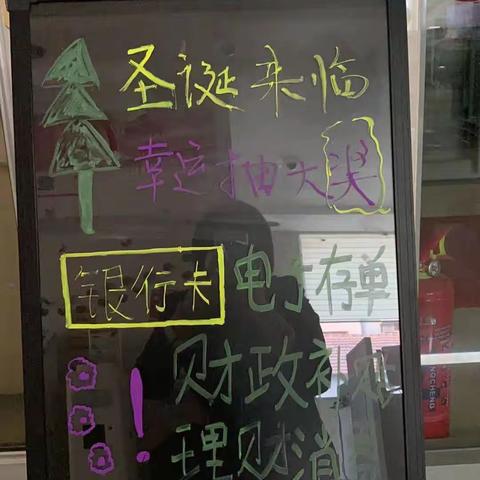 圣诞来临
幸运抽大奖
银行卡 电子存单
财政补贴
理财消
NGCHENG